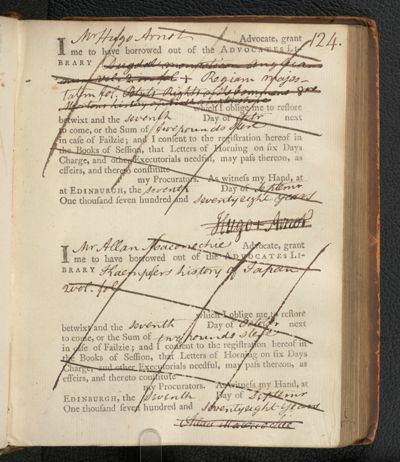 124.
I Mr Hugo Arnot Advocate, grant
me to have borrowed out of the ADVOCATES LI-
BRARY Dugdale monasticon Anglica
num vol: 2 in fol + Regiam majes-
tatem fol.
which I oblige me to restore
betwixt and the seventh Day of next
to come, or the Sum of five pounds sterl
in case of Failzie; and I consent to the registration hereof in
the Books of Session, that Letters of Horning on six Days
Charge, and other Executorials needful, may pass thereon, as
effeirs, and thereto constitute
my Procurators. As witness my Hand, at
at EDINBURGH, the seventh Day of Septemr
One thousand seven hundred and seventyeight years
Hugo Arnot
I Mr Allan Maconochie Advocate, grant
me to have borrowed out of the ADVOCATES LI-
BRARY Kaempfers history of Japan
2 vol. fol
which I oblige me to restore
betwixt and the seventh Day of October next
to come, or the Sum of two pounds sterl
in case of Failzie; and I consent to the registration hereof in
the Books of Session, that Letters of Horning on six Days
Charge, and other Executorials needful, may pass thereon, as
effeirs, and thereto constitute
my Procurators. As witness my Hand, at
EDINBURGH, the seventh Day of Septemr
One thousand seven hundred and seventyeight years
Allan Maconochie